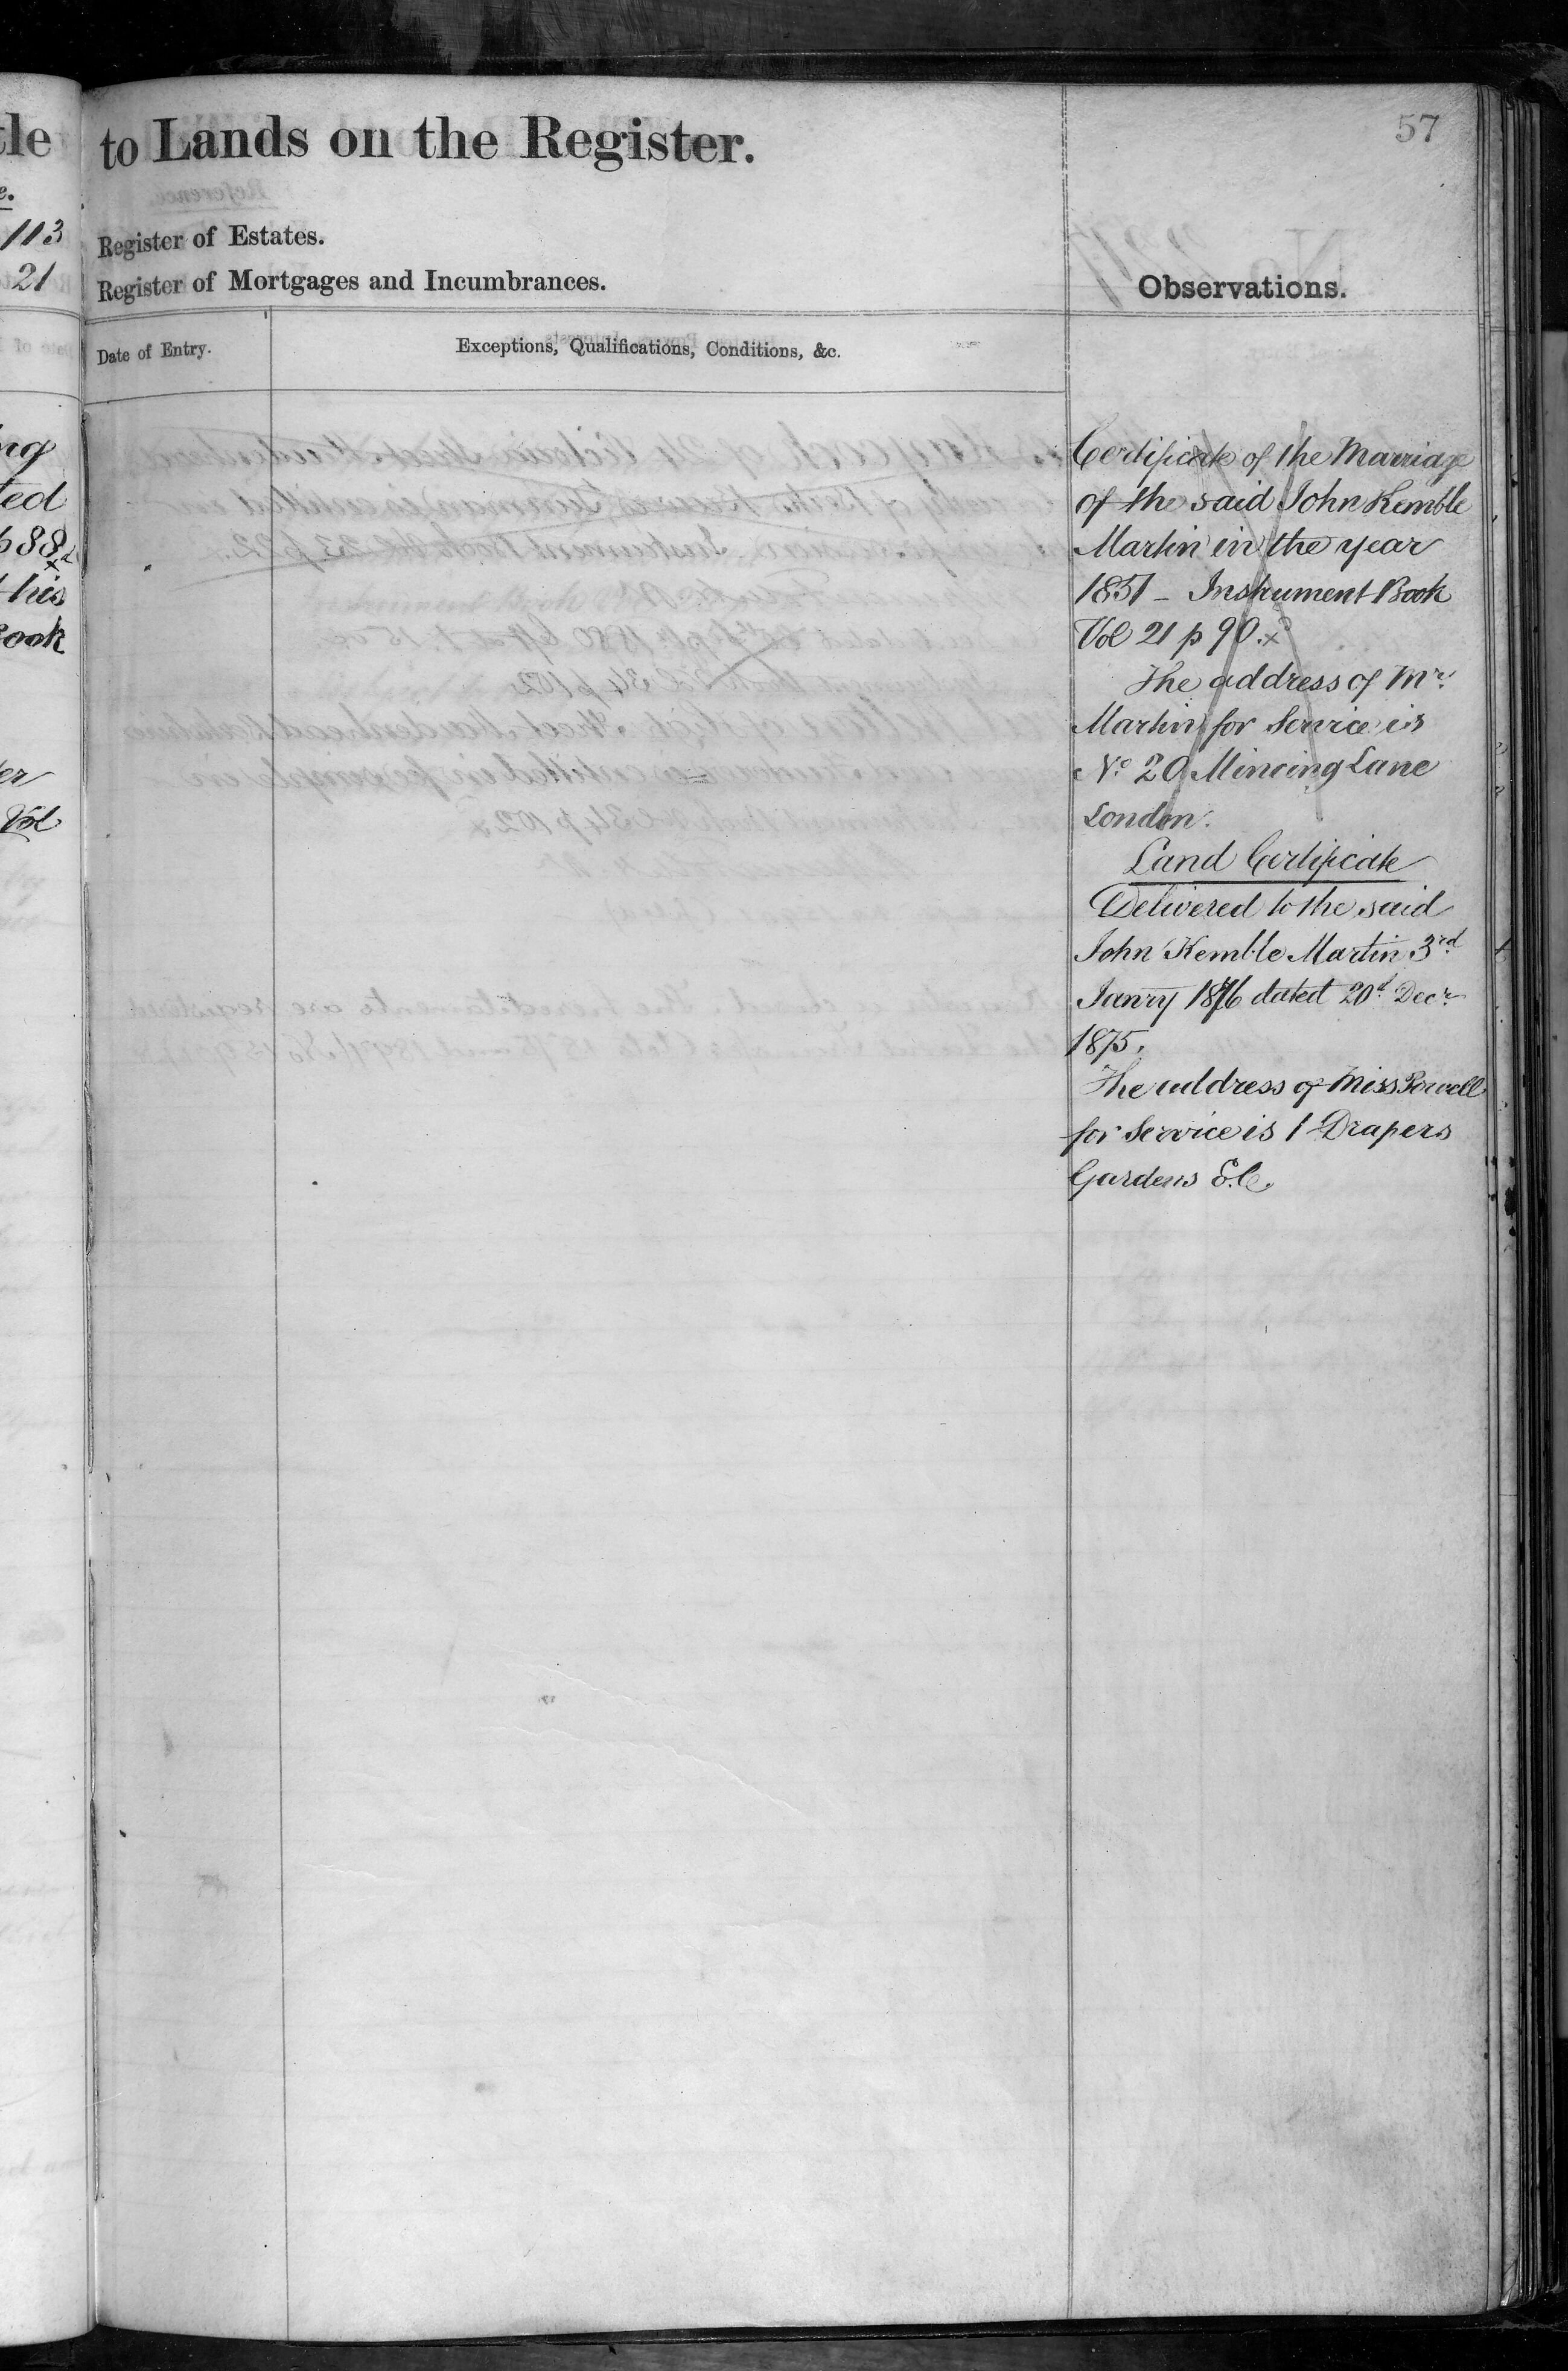 57
to Lands on the Register.
Register of Estates.
Register of Mortgages and Incumbrances.
Observations.
Date of Entry.
Exceptions, Qualifications, Conditions, &c.
Certificate of the Marriage
of the said John Kemble
Martin in the year
1851 - Instrument Book
Vol 21 p 90. x
The address of Mr.
Martin for Service is
No. 20 Mincing Lane
London.
Land Certificate
Delivered to the said
John Kemble Martin 3rd
Janry 1876 dated 20th Decr
1875.
The address of Miss Powell
for Service is 1 Drapers
Gardens E.C.
tle
113
21
ted
p 88
this
Book
Vol